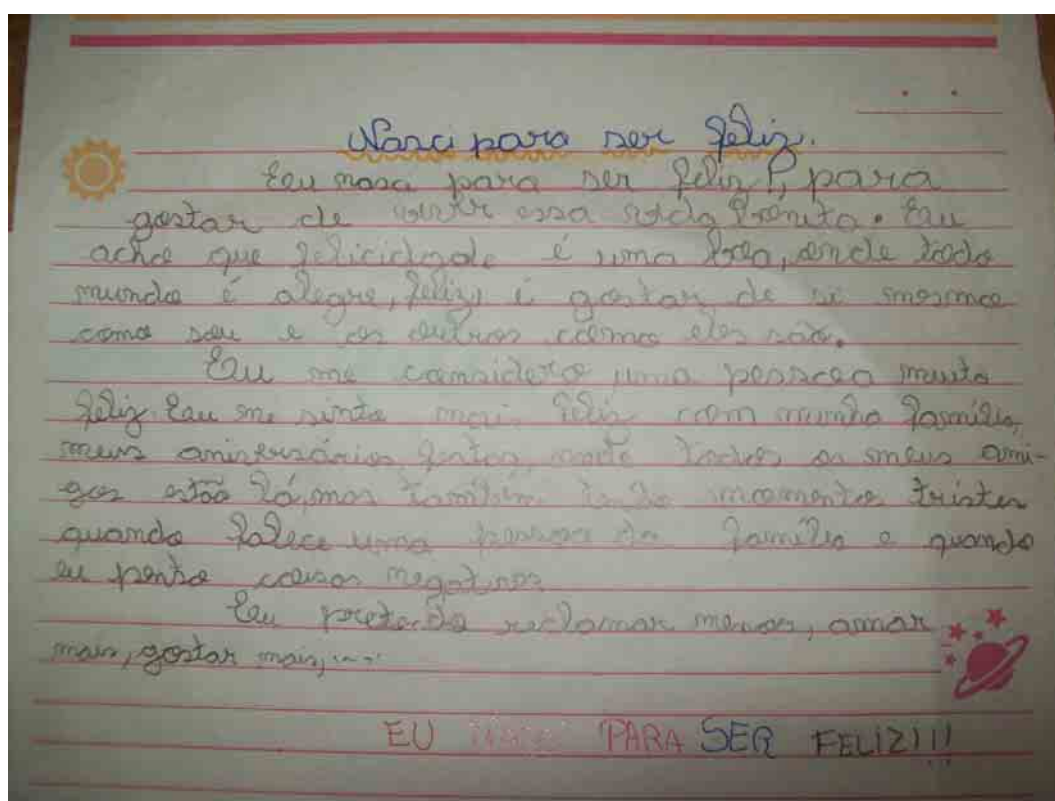 Nasci para ser feliz.
Eu nasci para ser feliz!, para
gostar de viver essa vida bonita. Eu
acho que felicidade é uma boa, onde todo
mundo é alegre, feliz, é gostar de si mesmo
como sou e os outros como eles são.
Eu me considero uma pessoa muito
feliz. Eu me sinto mais feliz com minha família,
meus aniversários, festas, onde todos os meus ami-
gos estão lá, mas também tenho momentos tristes
quando falece uma pessoa da família e quando
eu penso coisas negativas
Eu pretendo reclamar menos, amar
mais, gostar mais, ....
EU NASCI PARA SER FELIZ!!!